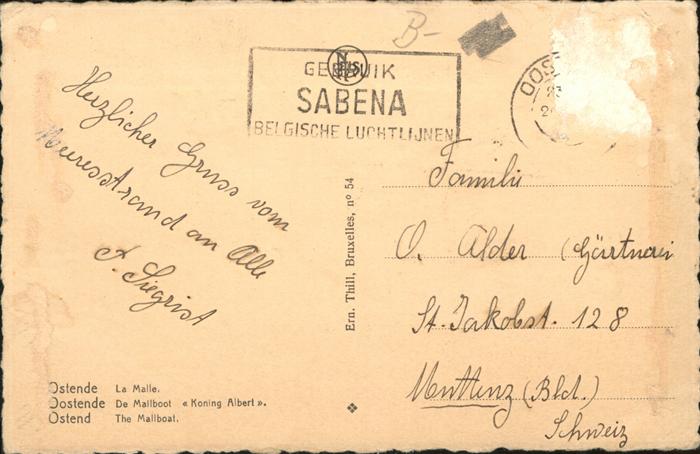 B-
GEBRUIK
SABENA
BELGISCHE LUCHTLIJNEN
OOS
Herzlicher Gruss vom
Meeresstrand an Alle
A. Siegrist
Familie
O. Alder (Gärtnerei
St. Jakobst. 128
Muttenz (Bld.)
Schweiz
Ern. Thill, Bruxelles, nº 54
Ostende La Malle.
Oostende De Mailboot « Koning Albert ».
Ostend The Mailboat.